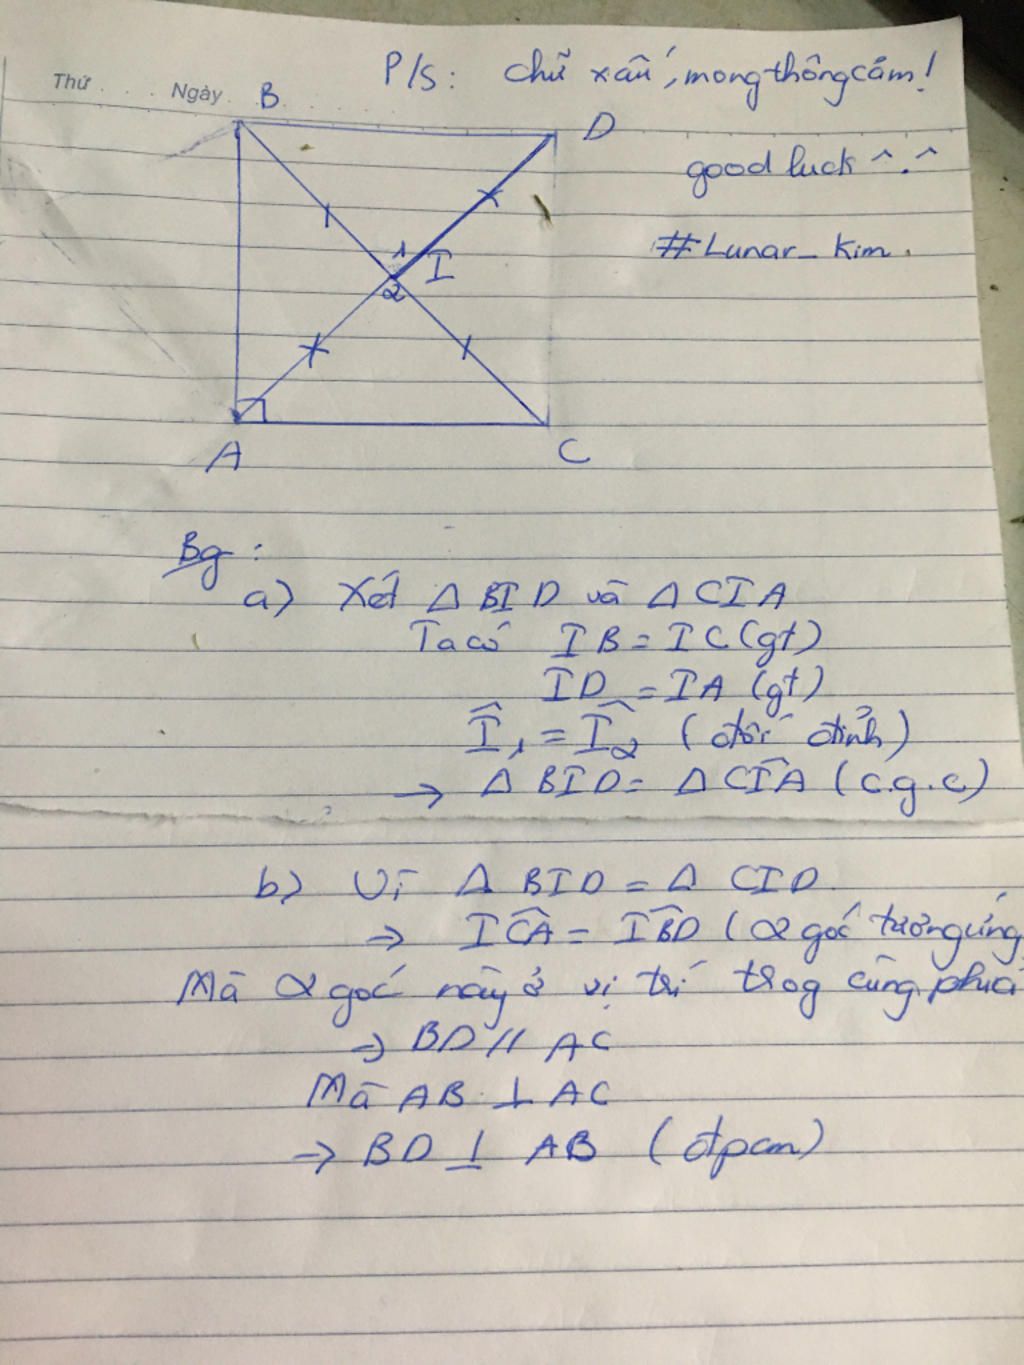 P/S: Chữ xấu, mong thông cảm!
Thứ Ngày
good luck ^.^
#Lunar_Kim.
B
D
1
I
2
A
C
Bg:
a) Xét Δ BID và Δ CIA
Ta có IB = IC (gt)
ID = IA (gt)
Î₁ = Î₂ (đối đỉnh)
→ Δ BID = Δ CIA (c.g.c)
b) Vì Δ BID = Δ CID
⇒ IĈA = IB̂D (2 góc tương ứng
Mà 2 góc này ở vị trí trog cùng phía
⇒ BD // AC
Mà AB ⊥ AC
⇒ BD ⊥ AB (đpcm)